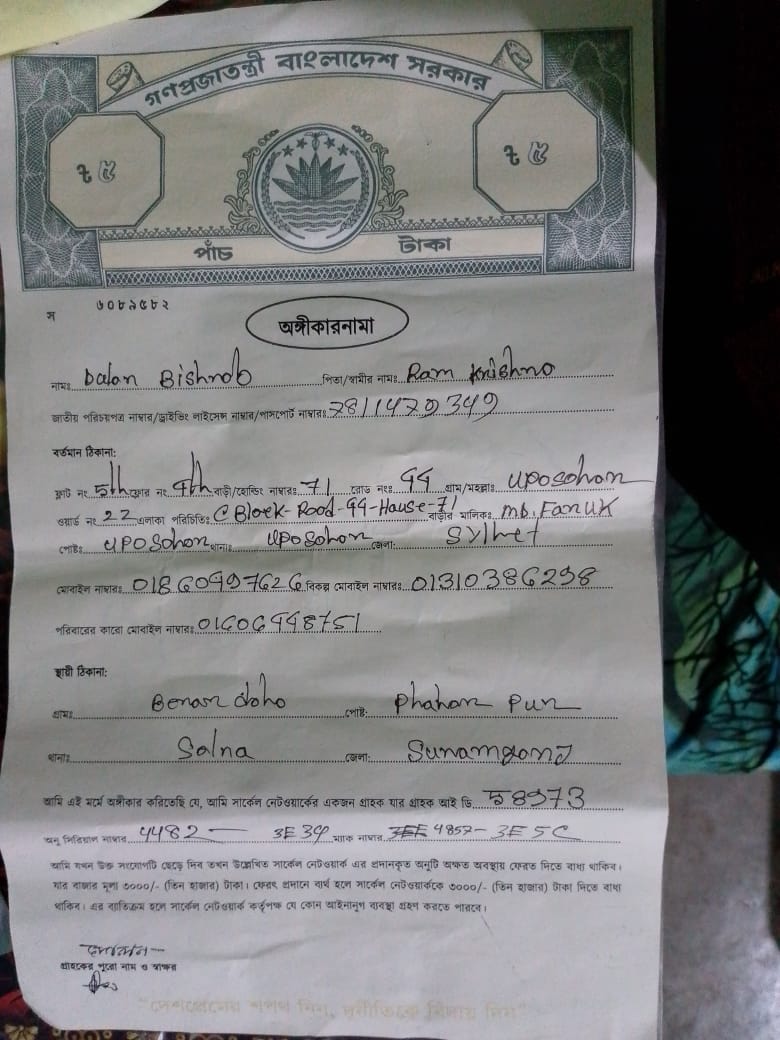 গণপ্রজাতন্ত্রী বাংলাদেশ সরকার
৳ ৫ ৳ ৫
পাঁচ টাকা
স ৬০৮৯৫৮২
অঙ্গীকারনামা
নামঃ Dalon Bishnob পিতা/স্বামীর নামঃ Ram Krishno
জাতীয় পরিচয়পত্র নাম্বার/ড্রাইভিং লাইসেন্স নাম্বার/পাসপোর্ট নাম্বারঃ 7811479349
বর্তমান ঠিকানা:
ফ্লাট নং 5th ফ্লোর নং 4th বাড়ী/হোল্ডিং নাম্বারঃ 71 রোড নংঃ 44 গ্রাম/মহল্লাঃ uposohon
ওয়ার্ড নং 22 এলাকা পরিচিতিঃ C Bloek-Rood-44-House-71 বাড়ীর মালিকঃ md. Faruk
পোষ্টঃ uposohon থানাঃ uposohon জেলা: Sylhet
মোবাইল নাম্বারঃ বিকল্প মোবাইল নাম্বারঃ 01310386298
পরিবারের কারো মোবাইল নাম্বারঃ
স্থায়ী ঠিকানা:
গ্রামঃ পোষ্ট:
থানাঃ Salna জেলা: Sunamgonj
আমি এই মর্মে অঙ্গীকার করিতেছি যে, আমি সার্কেল নেটওয়ার্কের একজন গ্রাহক যার গ্রাহক আই ডি
অনু সিরিয়াল নাম্বার 4482 — 3E39 ম্যাক নাম্বার 4857-3E5C
আমি যখন উক্ত সংযোগটি ছেড়ে দিব তখন উল্লেখিত সার্কেল নেটওয়ার্ক এর প্রদানকৃত অনুটি অক্ষত অবস্থায় ফেরত দিতে বাধ্য থাকিব।
যার বাজার মূল্য ৩০০০/- (তিন হাজার) টাকা। ফেরৎ প্রদানে ব্যর্থ হলে সার্কেল নেটওয়ার্ককে ৩০০০/- (তিন হাজার) টাকা দিতে বাধ্য
থাকিব। এর ব্যতিক্রম হলে সার্কেল নেটওয়ার্ক কর্তৃপক্ষ যে কোন আইনানুগ ব্যবস্থা গ্রহণ করতে পারবে।
গ্রাহকের পুরো নাম ও স্বাক্ষর
"দেশপ্রেমের শপথ নিন, দুর্নীতিকে বিদায় দিন"